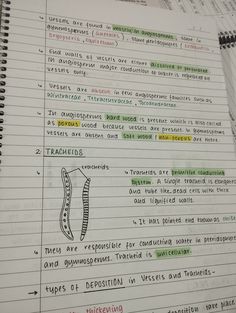 ↳ vessels are found in vessels in angiosperms, some in
gymnosperms (Gnetales), some pteridophytes (
End walls of vessels are either dissolved or perforated
in angiosperm major conduction of water is
vessels only.
↳ Vessels are absent in few angiosperms families such as
Winteraceae, Tetracentraceae, Trochodendraceae.
↳ In angiosperms hard wood is present which is also called
as porous wood because vessels are present. In gymnosperms
vessels are absent and soft wood / non porous are
2. TRACHEIDS
tracheids
↳ Tracheids are primitive conducting
system. A single tracheid is elongated
and tube like dead cells with thick
and lignified walls.
↳ It has pointed end
↳ They are responsible for conducting water in
and gymnosperms. Tracheid is unicellular.
→ types of DEPOSITION in vessels and Tracheids-
thickening
deposition take place